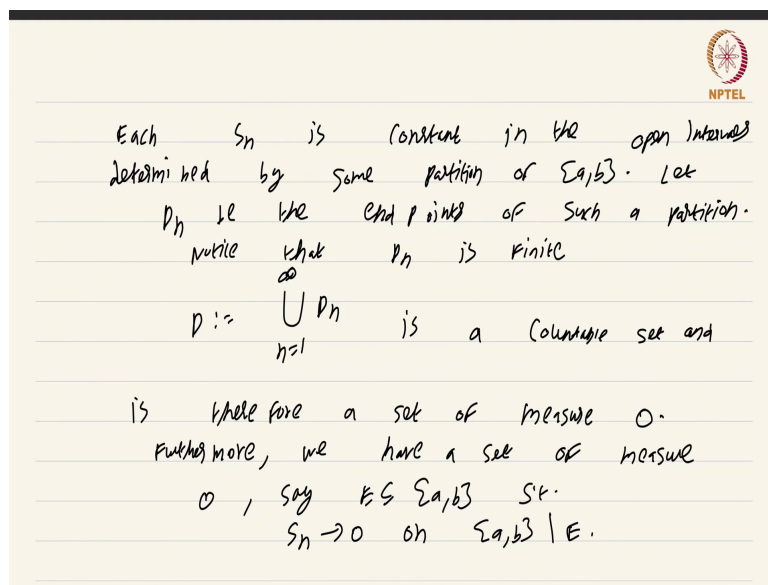 NPTEL
Each Sn is constant in the open intervals
determined by some partition of [a,b]. Let
Dn be the end points of such a partition.
Notice that Dn is finite
∞
D := ⋃ Dn is a countable set and
n=1
is therefore a set of measure 0.
Furthermore, we have a set of measure
0, say E ⊆ [a,b] s.t.
Sn → 0 on [a,b] \ E.